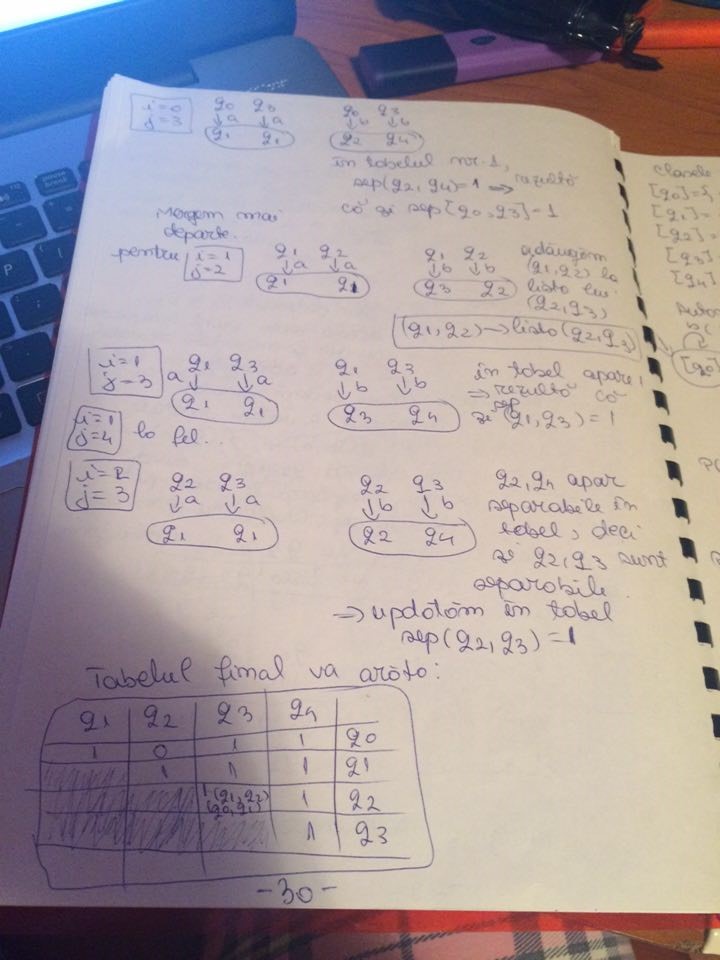 i=0
j=3
q0 q3
↓a ↓a
q1 q1
q0 q3
↓b ↓b
q2 q4
în tabelul nr. 1,
sep(q2, q4)=1 => rezultă
că și sep[q0, q3]=1
Mergem mai
departe...
pentru
i=1
j=2
q1 q2
↓a ↓a
q1 q1
q1 q2
↓b ↓b
q3 q2
adăugăm
(q1, q2) la
lista lui
(q2, q3)
(q1, q2) → lista (q2, q3)
i=1
j=3
q1 q3
a↓ ↓a
q1 q1
q1 q3
↓b ↓b
q3 q4
în tabel apare 1
=> rezultă că
și sep(q1, q3) = 1
i=1
j=4
la fel...
i=2
j=3
q2 q3
↓a ↓a
q1 q1
q2 q3
↓b ↓b
q2 q4
q2, q4 apar
separabile în
tabel, deci
și q2, q3 sunt
separabile.
=> updatăm în tabel
sep(q2, q3) = 1
Tabelul final va arăta:
q1 q2 q3 q4
1 0 1 1 q0
1 1 1 q1
1 (q1, q2) 1 q2
(q0, q1)
1 q3
-30-
clasele
[q0]=
[q1]=
[q2]=
[q3]=
[q4]=
[q0]